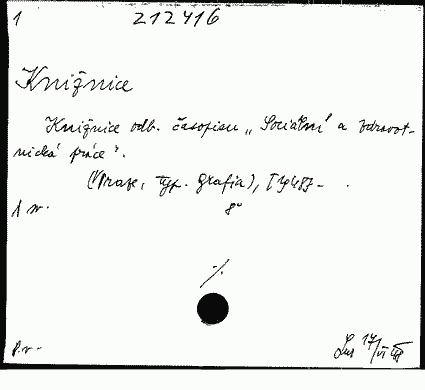 1 212416
Knižnice
Knižnice odb. časopisu „Sociální a zdravot-
nická práce".
(Praze, typ. Grafia), [1948]-
8°
17/VI 48